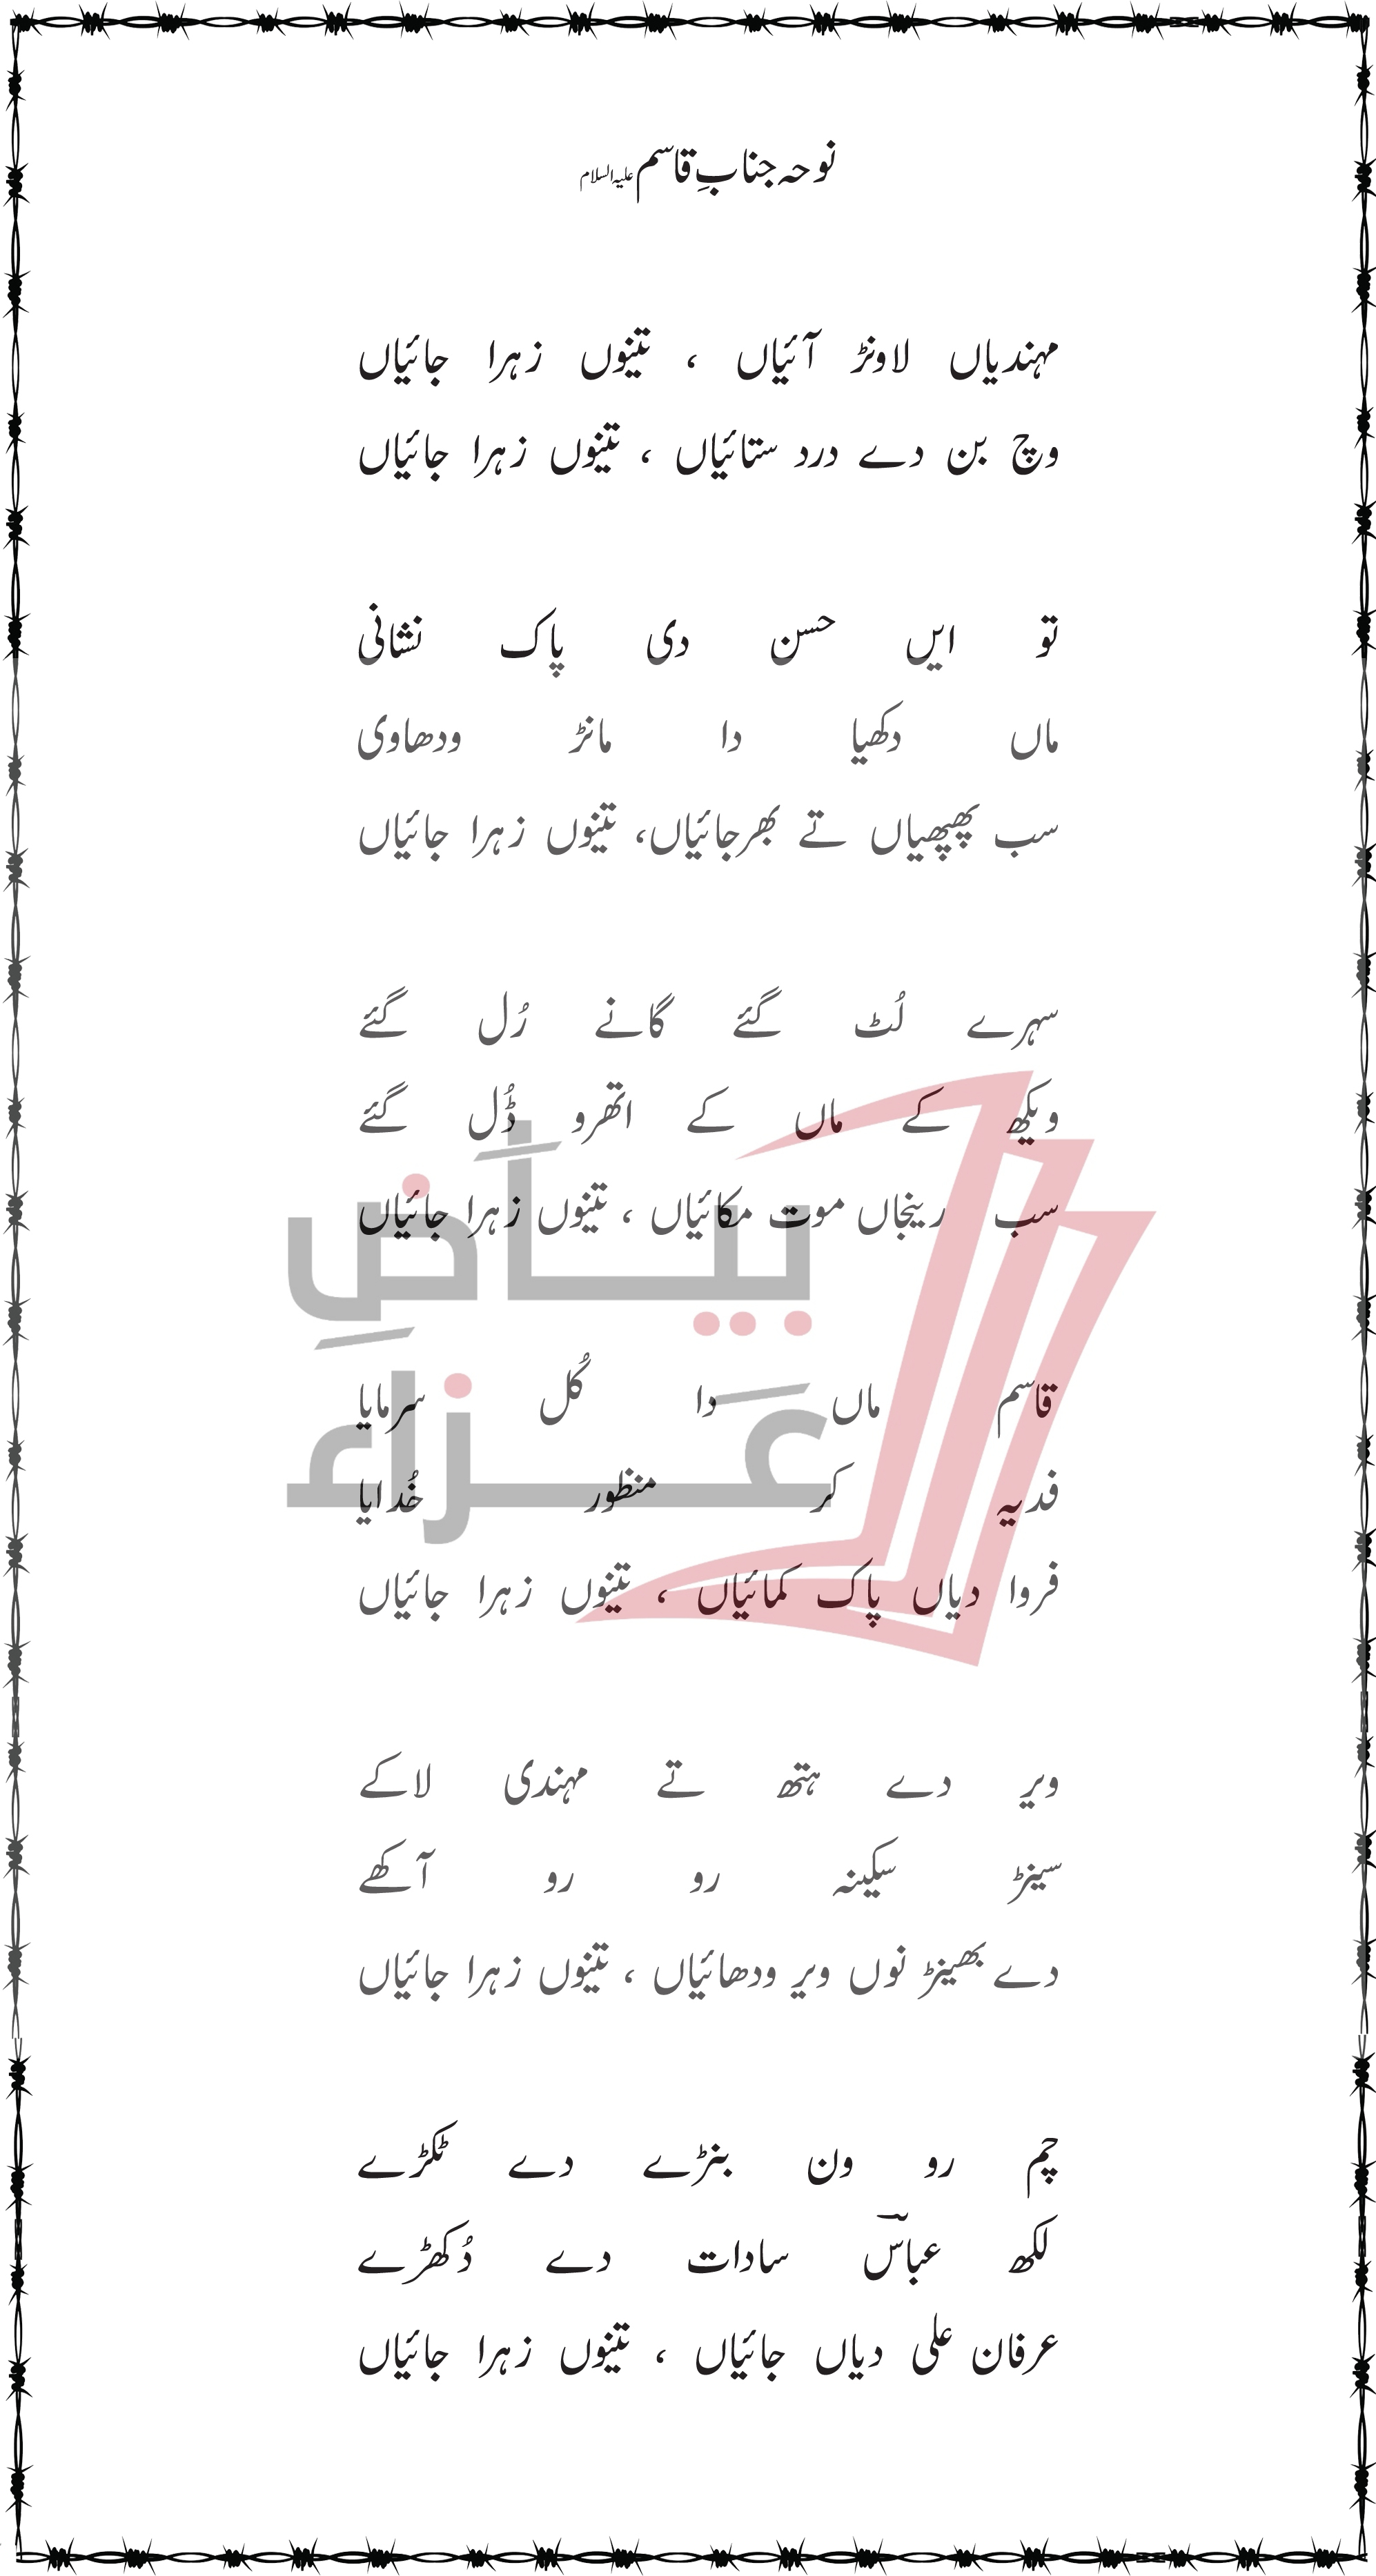 نوحہ جنابِ قاسم علیہ السلام
مہندیاں لاونڑ آئیاں ، تینوں زہرا جائیاں
وچ بن دے درد ستائیاں ، تینوں زہرا جائیاں
تو ایں حسن دی پاک نشانی
ماں دکھیا دا مانڑ ودھاوی
سب پھپھیاں تے بھرجائیاں، تینوں زہرا جائیاں
سہرے لُٹ گئے گانے رُل گئے
ویکھ کے ماں کے اتھرو ڈُل گئے
سب رینجاں موت مکائیاں ، تینوں زہرا جائیاں
بیاَضِ
عَزاء
قاسم ماں دا کُل سرمایا
فدیہ کر منظور خُدایا
فروا دیاں پاک کمائیاں ، تینوں زہرا جائیاں
ویر دے ہتھ تے مہندی لاکے
سینڑ سکینہ رو رو آکھے
دے بھینڑ نوں ویر ودھائیاں ، تینوں زہرا جائیاں
چم رو ون بنڑے دے ٹکڑے
لکھ عباسؔ سادات دے دُکھڑے
عرفان علی دیاں جائیاں ، تینوں زہرا جائیاں